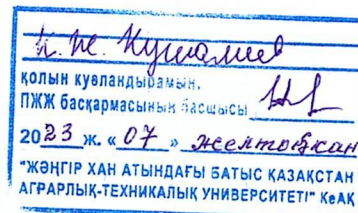 К. Ж. Кушалиев
қолын куәландырамын.
ПЖЖ басқармасының басшысы
2023 ж. «07» желтоқсан
"ЖӘҢГІР ХАН АТЫНДАҒЫ БАТЫС ҚАЗАҚСТАН
АГРАРЛЫҚ-ТЕХНИКАЛЫҚ УНИВЕРСИТЕТІ" КеАҚ